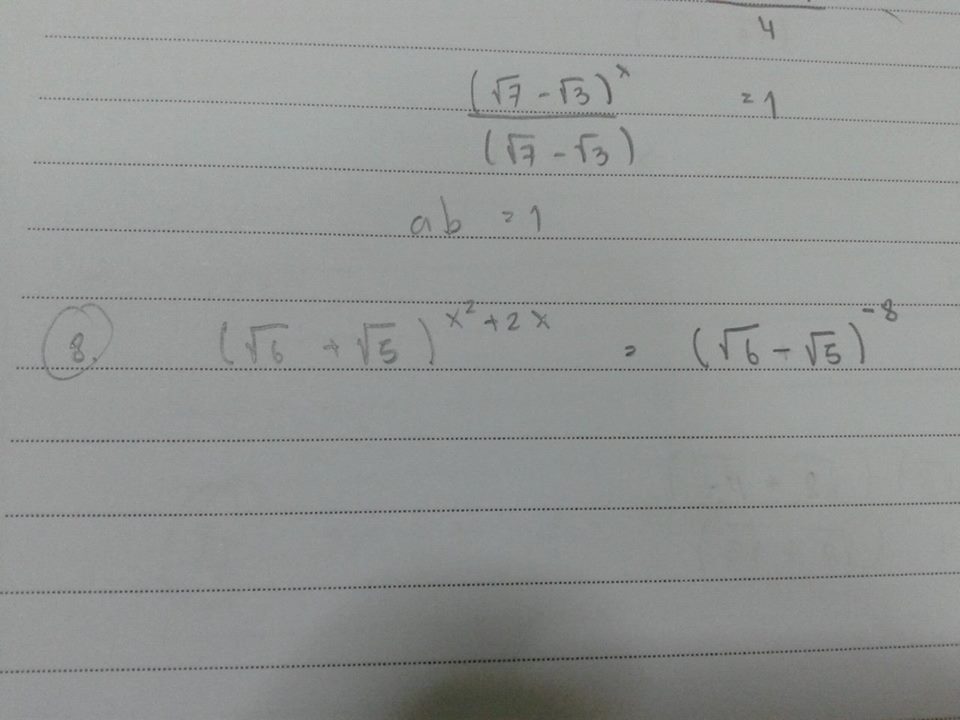 4
(√7 - √3)^x = 1
(√7 - √3)
ab = 1
8. (√6 + √5)^x²+2x = (√6 - √5)^-8